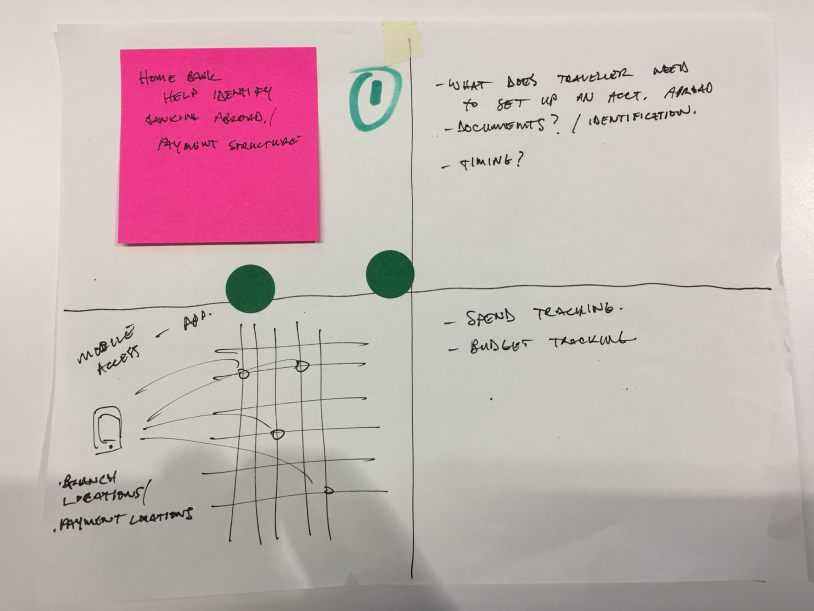 HOME BANK
HELP IDENTIFY
BANKING ABROAD./
PAYMENT STRUCTURE
1
- WHAT DOES TRAVELLER NEED
TO SET UP AN ACCT. ABROAD
- DOCUMENTS? / IDENTIFICATION.
- TIMING?
MOBILE - APP.
ACCESS
. BRANCH
LOCATIONS/
. PAYMENT LOCATIONS
- SPEND TRACKING.
- BUDGET TRACKING